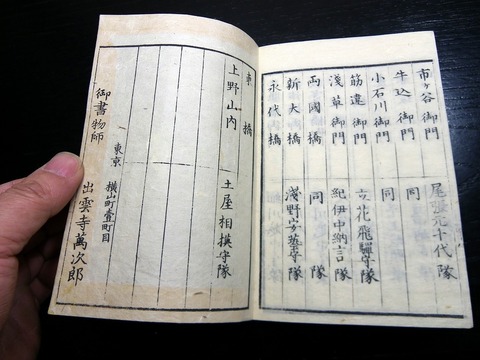 市ヶ谷御門 尾張元千代隊
牛込御門 同
小石川御門 同
筋違御門 立花飛驒守隊
淺草御門 紀伊中納言隊
両國橋 同隊
新大橋 淺野安藝守隊
永代橋
東橋
上野山内 土屋相摸守隊
東京 橫山町壹町目
御書物師 出雲寺萬次郎